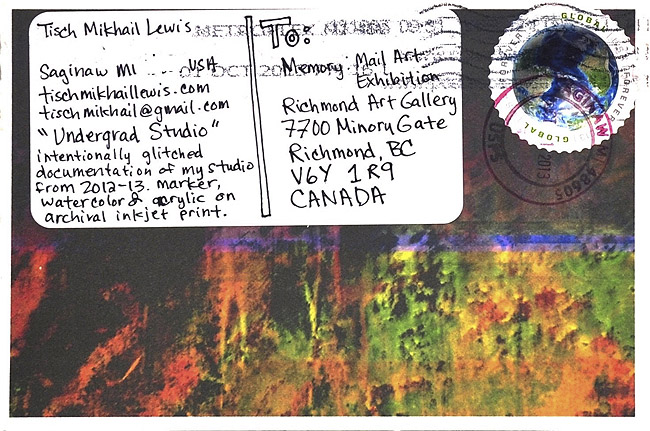 Tisch Mikhail Lewis
Saginaw MI USA
tischmikhaillewis.com
tischmikhail@gmail.com
"Undergrad Studio"
intentionally glitched
documentation of my studio
from 2012-13. marker,
watercolor & acrylic on
archival inkjet print.
To:
Memory: Mail Art
Exhibition
Richmond Art Gallery
7700 Minory Gate
Richmond, BC
V6Y 1R9
CANADA
GLOBAL
FOREVER
FOREVER
GLOBAL
SAGINAW MI 48605
2013